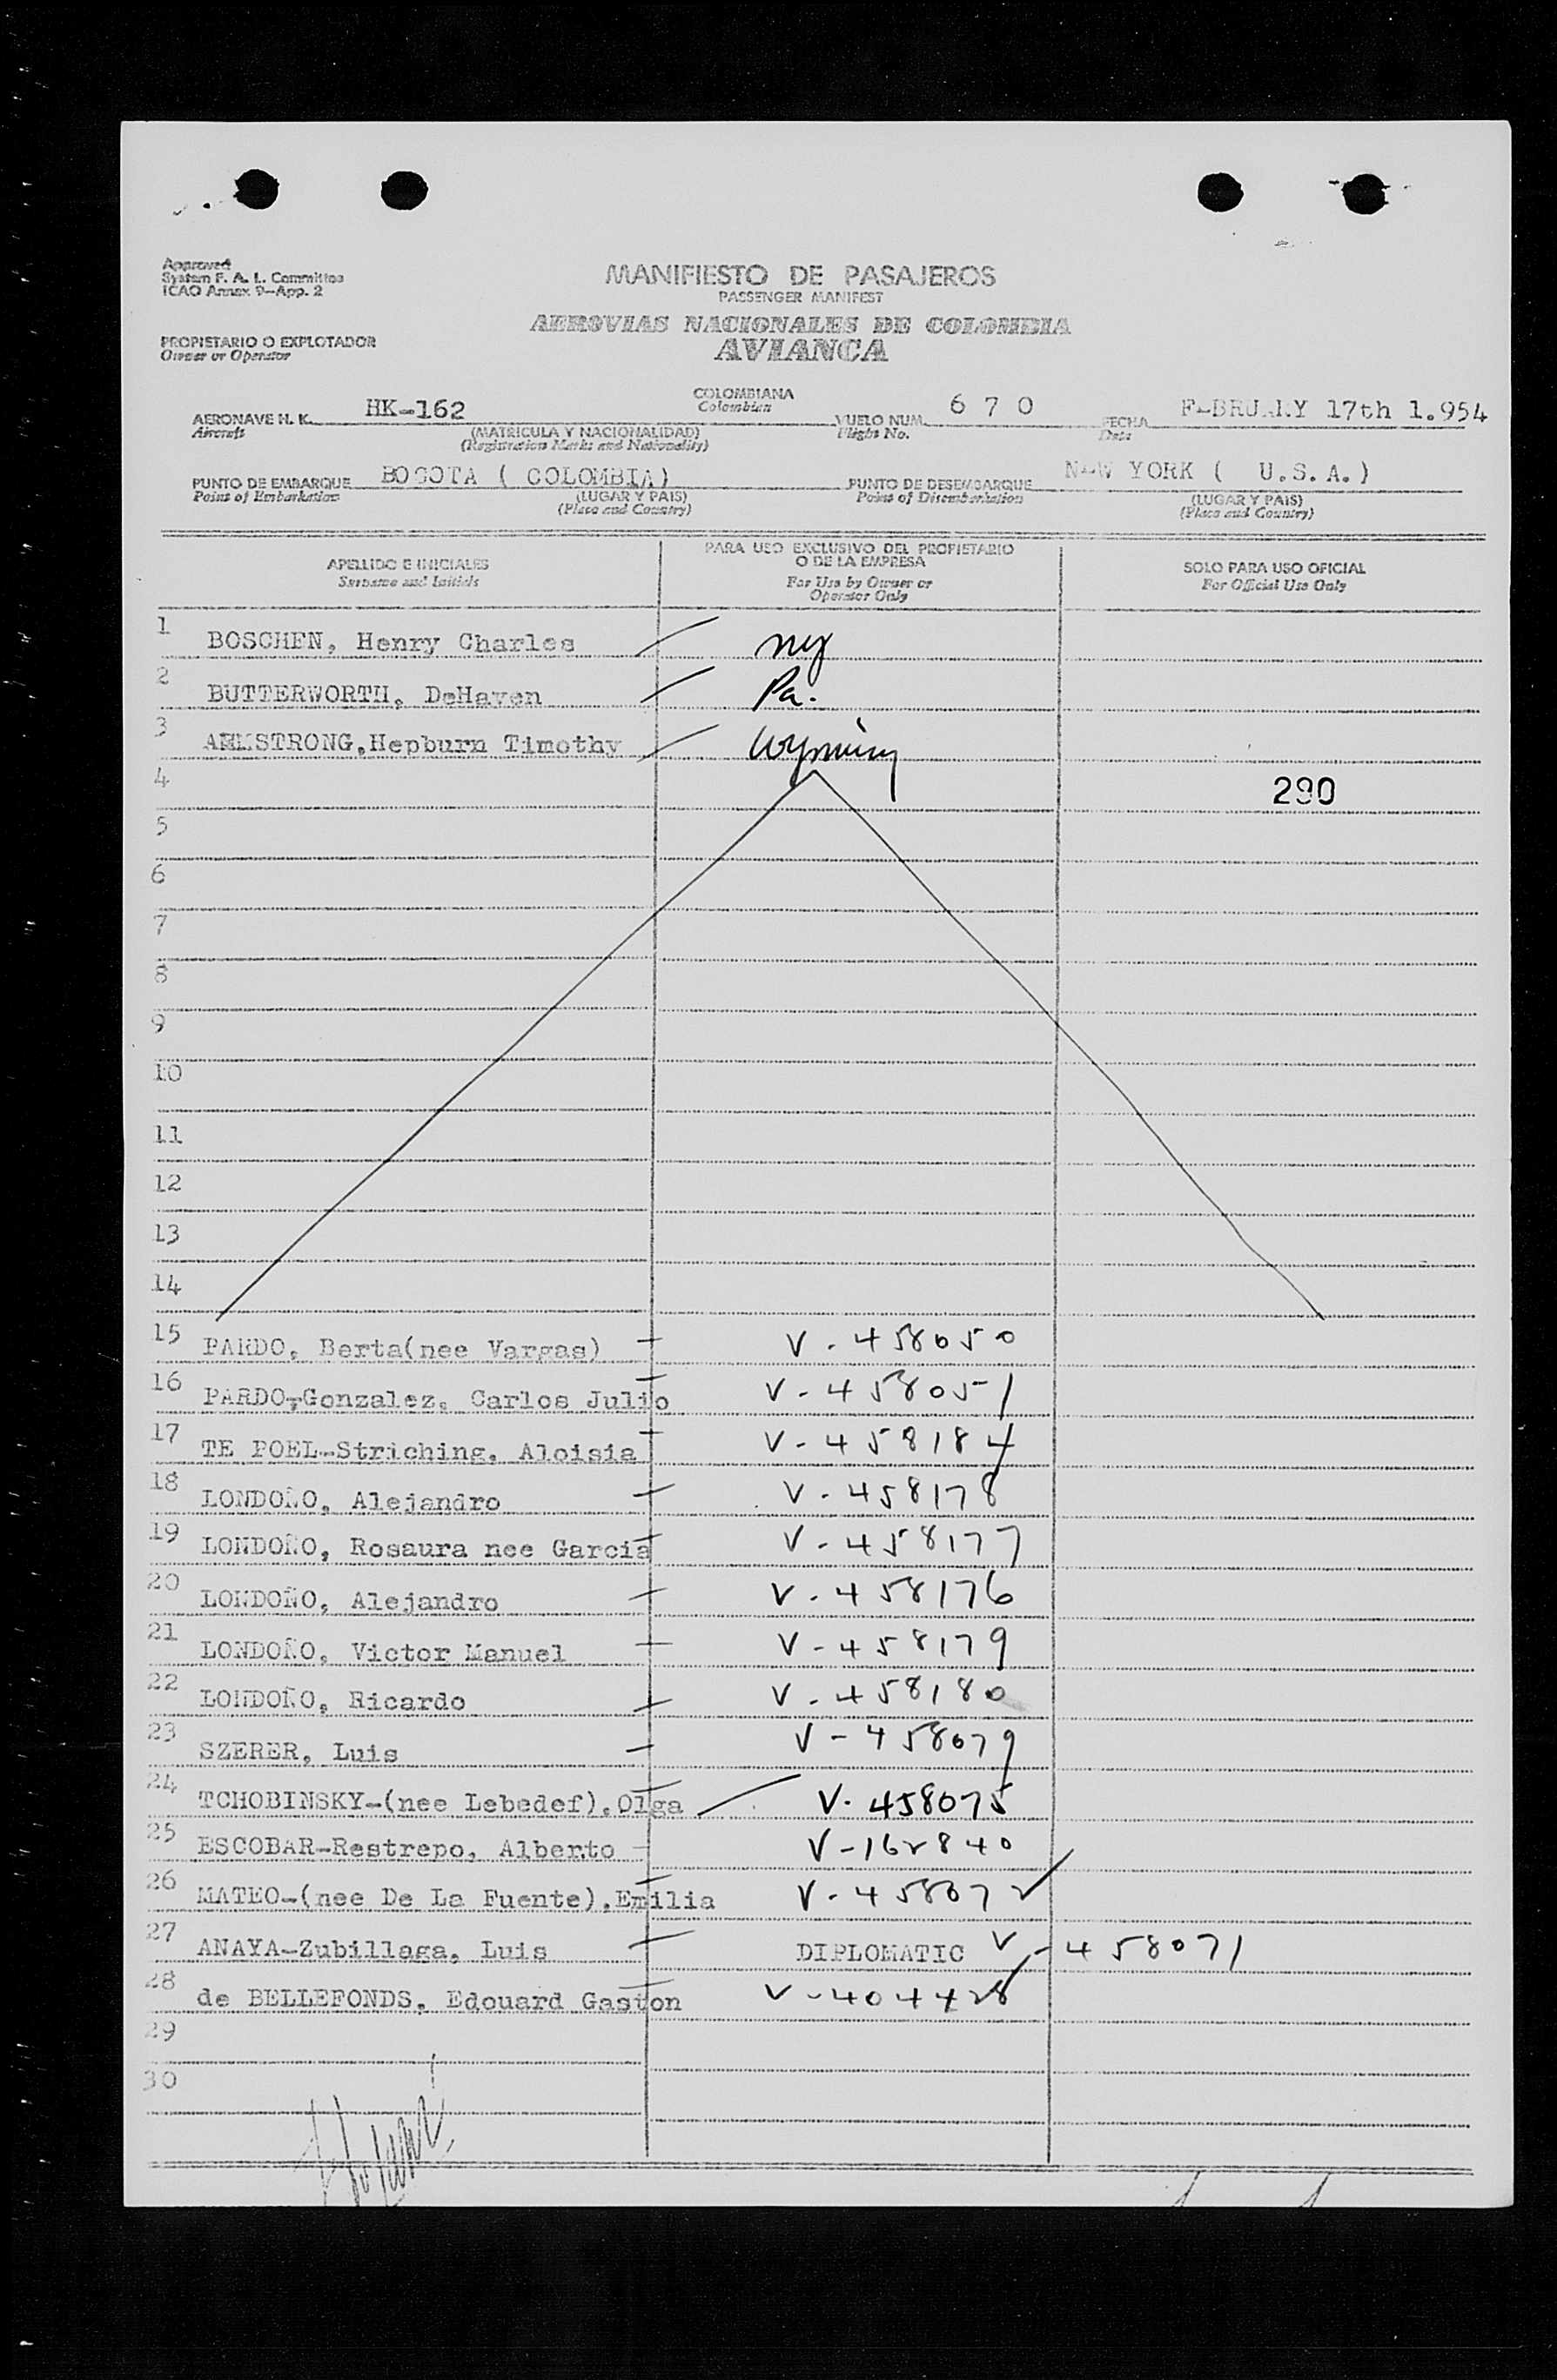 Approved
System F. A. L. Committee
ICAO Annex 9-App. 2
MANIFIESTO DE PASAJEROS
PASSENGER MANIFEST
AEROVIAS NACIONALES DE COLOMBIA
AVIANCA
PROPIETARIO O EXPLOTADOR
Owner or Operator
AERONAVE H. K. HK-162 COLOMBIANA VUELO NUM. 6 7 0 FECHA FEBRUARY 17th 1.954
Aircraft (MATRICULA Y NACIONALIDAD) Colombian Flight No. Date
(Registration Marks and Nationality)
PUNTO DE EMBARQUE BOGOTA ( COLOMBIA) PUNTO DE DESEMBARQUE NEW YORK ( U.S.A.)
Point of Embarkation (LUGAR Y PAIS) Point of Disembarkation (LUGAR Y PAIS)
(Place and Country) (Place and Country)
APELLIDO E INICIALES PARA USO EXCLUSIVO DEL PROPIETARIO O DE LA EMPRESA SOLO PARA USO OFICIAL
Surname and Initials For Use by Owner or Operator Only For Official Use Only
1 BOSCHEN, Henry Charles ny
2 BUTTERWORTH, DeHaven Pa.
3 ARMSTRONG,Hepburn Timothy Wyoming
4 290
5
6
7
8
9
10
11
12
13
14
15 PARDO, Berta(nee Vargas) V - 458050
16 PARDO-Gonzalez, Carlos Julio V - 458051
17 TE POEL-Striching, Aloisia V - 458184
18 LONDOÑO, Alejandro V - 458178
19 LONDOÑO, Rosaura nee Garcia V - 458177
20 LONDOÑO, Alejandro V - 458176
21 LONDOÑO, Victor Manuel V - 458179
22 LONDOÑO, Ricardo V - 458180
23 SZERER, Luis V - 458079
24 TCHOBINSKY-(nee Lebedef),Olga V - 458075
25 ESCOBAR-Restrepo, Alberto V - 162840
26 MATEO-(nee De La Fuente),Emilia V - 458072
27 ANAYA-Zubillaga, Luis DIPLOMATIC V - 458071
28 de BELLEFONDS, Edouard Gaston V - 404428
29
30